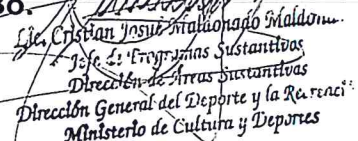 30.
Lic. Cristian Josué Maldonado
Jefe de Programas Sustantivos
Dirección de Áreas Sustantivas
Dirección General del Deporte y la
Ministerio de Cultura y Deportes